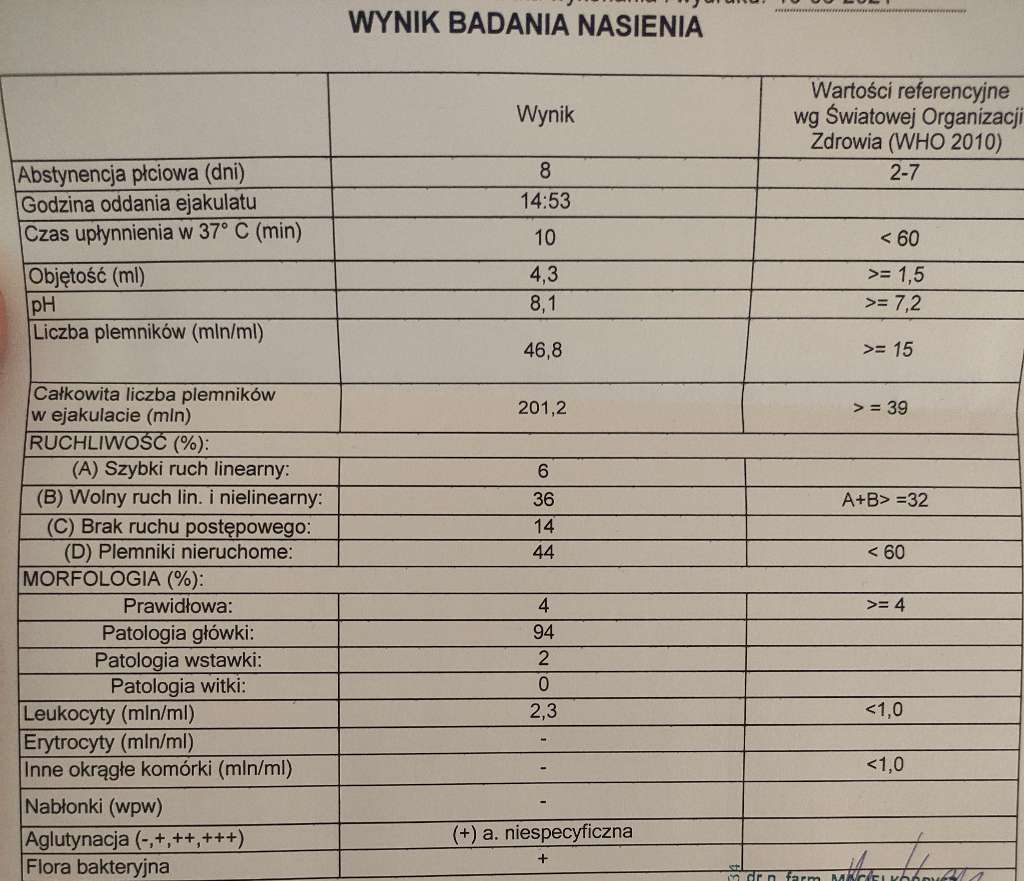 WYNIK BADANIA NASIENIA
Wynik
Wartości referencyjne
wg Światowej Organizacji
Zdrowia (WHO 2010)
Abstynencja płciowa (dni) 8 2-7
Godzina oddania ejakulatu 14:53
Czas upłynnienia w 37° C (min) 10 < 60
Objętość (ml) 4,3 >= 1,5
pH 8,1 >= 7,2
Liczba plemników (mln/ml) 46,8 >= 15
Całkowita liczba plemników
w ejakulacie (mln) 201,2 > = 39
RUCHLIWOŚĆ (%):
(A) Szybki ruch linearny: 6
(B) Wolny ruch lin. i nielinearny: 36 A+B> =32
(C) Brak ruchu postępowego: 14
(D) Plemniki nieruchome: 44 < 60
MORFOLOGIA (%):
Prawidłowa: 4 >= 4
Patologia główki: 94
Patologia wstawki: 2
Patologia witki: 0
Leukocyty (mln/ml) 2,3 <1,0
Erytrocyty (mln/ml) -
Inne okrągłe komórki (mln/ml) - <1,0
Nabłonki (wpw) -
Aglutynacja (-,+,++,+++) (+) a. niespecyficzna
Flora bakteryjna +
dr n. farm.